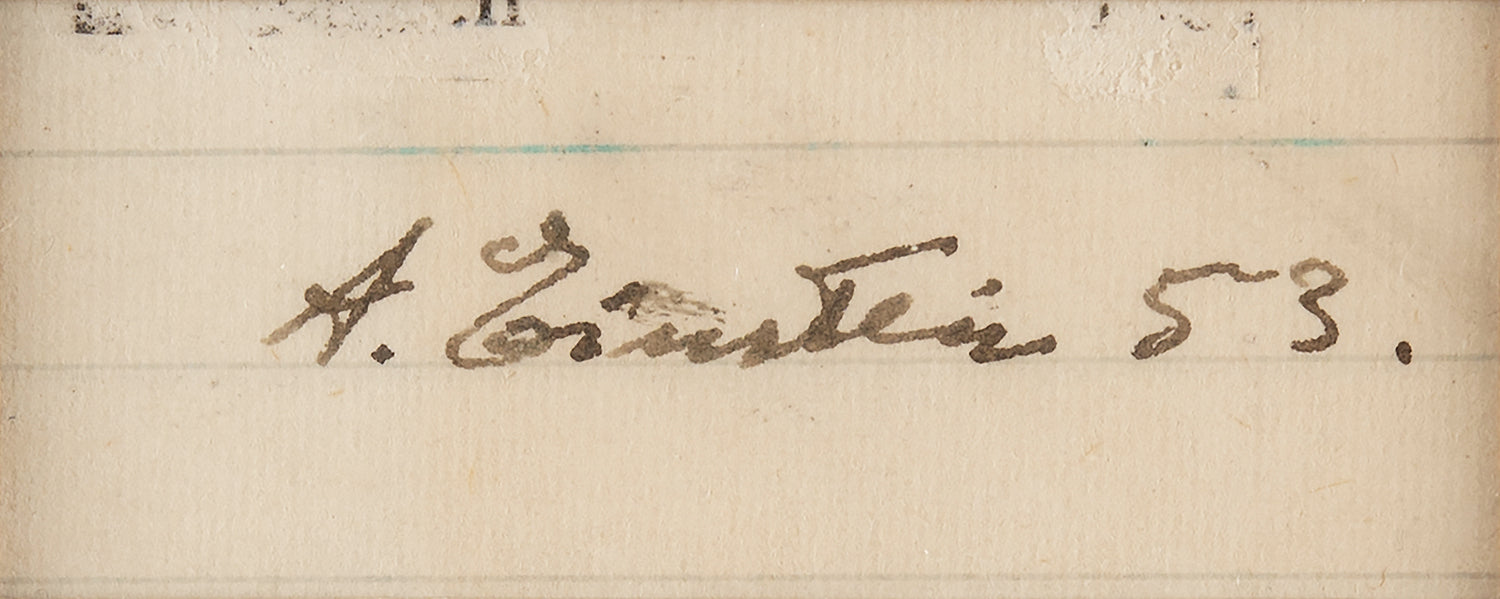 A. Einstein 53.